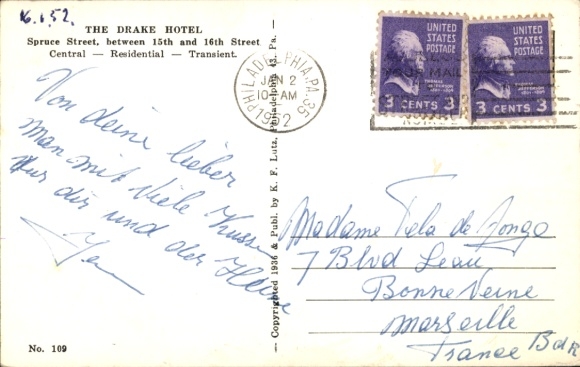 16.1.52.
THE DRAKE HOTEL
Spruce Street, between 15th and 16th Street
Central — Residential — Transient.
PHILADELPHIA, PA. 35
JAN 2
10 AM
UNITED
STATES
POSTAGE
THOMAS
JEFFERSON
3 CENTS 3
UNITED
STATES
POSTAGE
THOMAS
JEFFERSON
3 CENTS 3
Von deine lieber
Man mit viele Küsse
für dir und der Heine
— Copyrighted 1936 & Publ. by K. F. Lutz, Philadelphia 43, Pa. —
Madame Tela de Jongo
7 Blvd Leau
Bonne Veine
Marseille
France BdR
No. 109